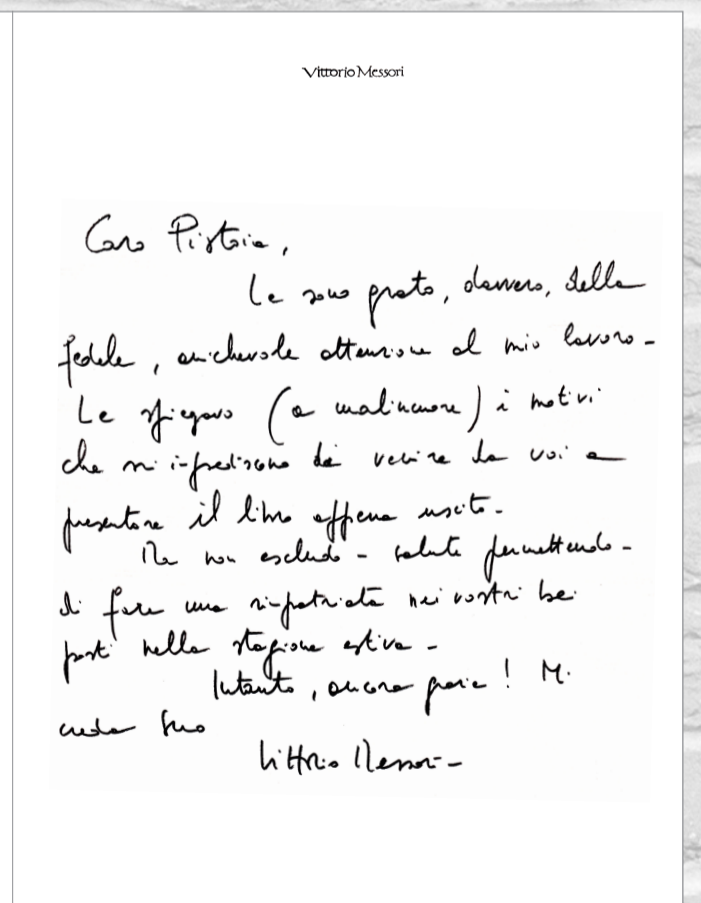 Vittorio Messori
Caro Pistoia,
Le sono grato, davvero, della
fedele, amichevole attenzione al mio lavoro -
Le spiegavo (a malincuore) i motivi
che mi impediscono di venire da voi a
presentare il libro appena uscito -
Ma non escludo - salute permettendo -
di fare una rimpatriata nei vostri bei
posti nella stagione estiva -
Intanto, ancora grazie! Mi
creda Suo
Vittorio Messori -